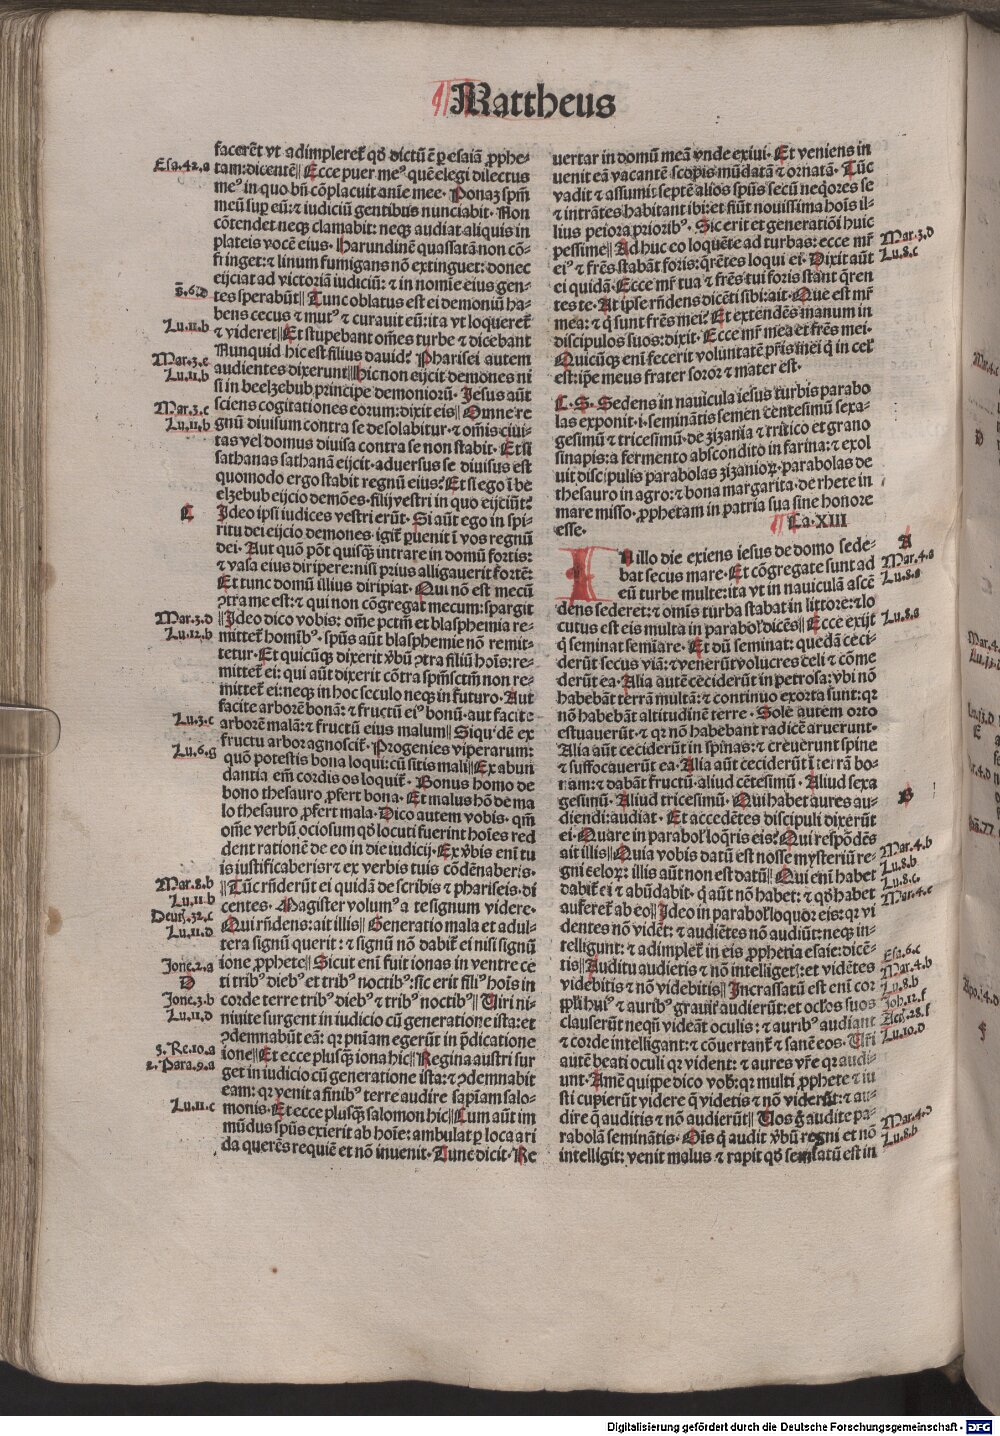 Mattheus
facerēt vt adimpleret̄ qď dictū ē ꝑ esaiā ꝓphe-
Esa.42.a
tam:dicentē‖Ecce puer meꝰ quē elegi dilectus
meꝰ in quo bn̄ cōplacuit anīe mee. Ponaʒ spm̄
meū suꝑ eū:⁊ iudiciū gentibus nunciabit. Non
cōtendet neqʒ clamabit: neqʒ audiat aliquis in
plateis vocē eius. Harundinē quassatā non cō-
fringet:⁊ linum fumigans nō extinguet: donec
eijciat ad victoriā iudiciū: ⁊ in nomīe eius gen-
tes sperabūt‖Tunc oblatus est ei demoniū ha-
bens cecus ⁊ mutꝰ ⁊ curauit eū:ita vt loqueret̄
Lu.11.b
⁊ videret‖Et stupebant om̄es turbe ⁊ dicebant
Nunquid hic est filius dauid? Pharisei autem
Mar.3.c
audientes dixerunt‖Hic non eijcit demones ni
Lu.11.b
si in beelzebub principe demoniorū. Jesus aūt
sciens cogitationes eorum:dixit eis‖Omne re
Mar.3.c
gnū diuisum contra se desolabitur.⁊ om̄is ciui-
Lu.11.b
tas vel domus diuisa contra se non stabit. Et si
sathanas sathanā eijcit.aduersus se diuisus est
quomodo ergo stabit regnū eius? Et si ego ī be
elzebub eijcio demōes.filij vestri in quo eijciūt?
C
Ideo ipsi iudices vestri erūt. Si aūt ego in spi-
ritu dei eijcio demones.igit̄ ꝑuenit ī vos regnū
dei. Aut quō pōt quisqʒ intrare in domū fortis:
⁊ vasa eius diripere:nisi prius alligauerit fortē:
Et tunc domū illius diripiat. Qui nō est mecū
ↄtra me est:⁊ qui non cōgregat mecum:spargit
Mar.3.d
‖Ideo dico vobis: om̄e pctm̄ et blasphemia re-
Lu.12.b
mittet̄ homībꝰ. spūs aūt blasphemie nō remit-
tetur. Et quicūqʒ dixerit v̄bū ↄtra filiū hoīs:re-
mittet̄ ei: qui aūt dixerit cōtra spm̄sctm̄ non re-
mittet̄ ei:neqʒ in hoc seculo neqʒ in futuro. Aut
facite arborē bonā: ⁊ fructū eiꝰ bonū.aut facite
Lu.3.c
arborē malā:⁊ fructū eius malum‖Siquidē ex
fructu arbor agnoscit̄. Progenies viperarum:
Lu.6.g
quō potestis bona loqui:cū sitis mali‖Ex abun
dantia em̄ cordis os loquit̄. Bonus homo de
bono thesauro ꝓfert bona. Et malus hō de ma
lo thesauro ꝓfert mala. Dico autem vobis. qm̄
om̄e verbū ociosum qď locuti fuerint hoīes red
dent rationē de eo in die iudicij. Ex v̄bis enī tu
is iustificaberis:⁊ ex verbis tuis cōdēnaberis.
Mar.8.b
‖Tūc rn̄derūt ei quidā de scribis ⁊ phariseis.di
Lu.11.b
centes. Magister volumꝰ a te signum videre.
Lu.11.d
Qui rn̄dens:ait illis‖Generatio mala et adul-
tera signū querit:⁊ signū nō dabit̄ ei nisi signū
Jone.2.a
ione ꝓphete‖Sicut enī fuit ionas in ventre ce
D
ti tribꝰ diebꝰ et tribꝰ noctibꝰ:sic erit filiꝰ hoīs in
Jone.3.b
corde terre tribꝰ diebꝰ ⁊ tribꝰ noctibꝰ‖Viri ni-
Lu.11.d
niuite surgent in iudicio cū generatione ista:et
ↄdemnabūt eā: qꝛ pnīam egerūt in p̄dicatione
3.Re.10.a
ione‖Et ecce plusqʒ iona hic‖Regina austri sur
2.Para.9.a
get in iudicio cū generatione ista:⁊ ↄdemnabit
eam: qꝛ venit a finibꝰ terre audire sapīam salo-
Lu.11.c
monis. Et ecce plusqʒ salomon hic‖Cum aūt im
mūdus spūs exierit ab hoīe:ambulat ꝑ loca ari
da querēs requiē et nō inuenit. Tunc dicit. Re
uertar in domū meā vnde exiui. Et veniens in
uenit eā vacantē scopis mūdatā ⁊ ornatā. Tūc
vadit ⁊ assumit septē alios spūs secū neqores se
⁊ intrātes habitant ibi:et fiūt nouissima hoīs il-
lius peiora prioribꝰ. Sic erit et generatiōi huic
pessime‖Ad huc eo loquēte ad turbas:ecce mr̄
Mar.3.d
eiꝰ ⁊ frēs stabāt foris:q̄rētes loqui ei. Dixit aūt
Lu.8.c
ei quidā. Ecce mr̄ tua ⁊ frēs tui foris stant q̄ren
tes te. At ipse rn̄dens dicēti sibi:ait. Que est mr̄
mea:⁊ q̄ sunt frēs mei? Et extendēs manum in
discipulos suos:dixit. Ecce mr̄ mea et frēs mei.
Quicūqʒ enī fecerit voluntatē pr̄is mei q̄ in cel̄
est:ip̄e meus frater soror ⁊ mater est.
C.S. Sedens in nauicula iesus turbis parabo
las exponit.i.seminātis semen centesimū sexa-
gesimū ⁊ tricesimū.de zizania ⁊ tritico et grano
sinapis:a fermento abscondito in farina:⁊ exol
uit discipulis parabolas zizanioꝝ.parabolas de
thesauro in agro:⁊ bona margarita.de rhete in
mare misso.ꝓphetam in patria sua sine honore
esse.
Ca.XIII
IN illo die exiens iesus de domo sede-
A
bat secus mare. Et cōgregate sunt ad
Mar.4.a
eū turbe multe:ita vt in nauiculā ascē
Lu.8.a
dens sederet:⁊ omīs turba stabat in littore:⁊ lo
cutus est eis multa in parabol̄ dicēs‖Ecce exijt
Lu.8.a
q̄ seminat semīare. Et dū seminat: quedā ceci-
derūt secus viā:⁊ venerūt volucres celi ⁊ cōme
derūt ea. Alia autē ceciderūt in petrosa:vbi nō
habebāt terrā multā:⁊ continuo exorta sunt:qꝛ
nō habebāt altitudinē terre. Sole autem orto
estuauerūt.⁊ qꝛ nō habebant radicē aruerunt.
Alia aūt ceciderūt in spinas:⁊ creuerunt spine
⁊ suffocauerūt ea. Alia aūt ceciderūt ī terrā bo-
nam:⁊ dabāt fructū.aliud cētesimū. Aliud sexa
gesimū. Aliud tricesimū. Qui habet aures au-
B
diendi:audiat. Et accedētes discipuli dixerūt
ei. Quare in parabol̄ loq̄ris eis? Qui respōdēs
ait illis‖Quia vobis datū est nosse mysteriū re-
Mar.4.b
gni celoꝝ: illis aūt non est datū‖Qui enī habet
Lu.8.b
dabit̄ ei ⁊ abūdabit.q̄ aūt nō habet:⁊ qď habet
Lu.8.c
auferet̄ ab eo‖Ideo in parabol̄ loquor eis:qꝛ vi
Mar.4.c
dentes nō vidēt:⁊ audiētes nō audiūt:neqʒ in-
telligunt:⁊ adimplet̄ in eis ꝓphetia esaie:dicē-
tis‖Auditu audietis ⁊ nō intelliget̄:et vidētes
Esa.6.c
videbitis ⁊ nō videbitis‖Incrassatū est enī cor
Mar.4.b
pp̄li huiꝰ ⁊ auribꝰ grauit̄ audierūt:et ocl̄os suos
Lu.8.b
Joh.12.f
clauserūt neqn̄ videāt oculis:⁊ auribꝰ audiant
Act.28.f
⁊ corde intelligant:⁊ cōuertant̄ ⁊ sanē eos. Vr̄i
Lu.10.d
autē beati oculi qꝛ vident:⁊ aures vr̄e qꝛ audi-
unt. Amē quippe dico vob̄:qꝛ multi ꝓphete ⁊ iu
sti cupierūt videre q̄ videtis ⁊ nō viderūt:⁊ au-
dire q̄ auditis ⁊ nō audierūt‖Vos ḡ audite pa-
Mar.4.d
rabolā seminātis. Oīs q̄ audit v̄bū regni et nō
Lu.8.b
intelligit: venit malus ⁊ rapit qď seminatū est in
Digitalisierung gefördert durch die Deutsche Forschungsgemeinschaft - DFG